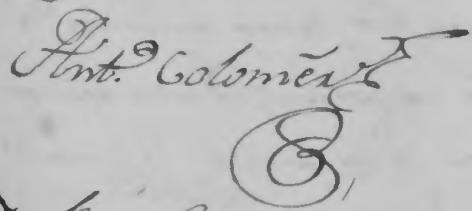 Ant.º Colomēr